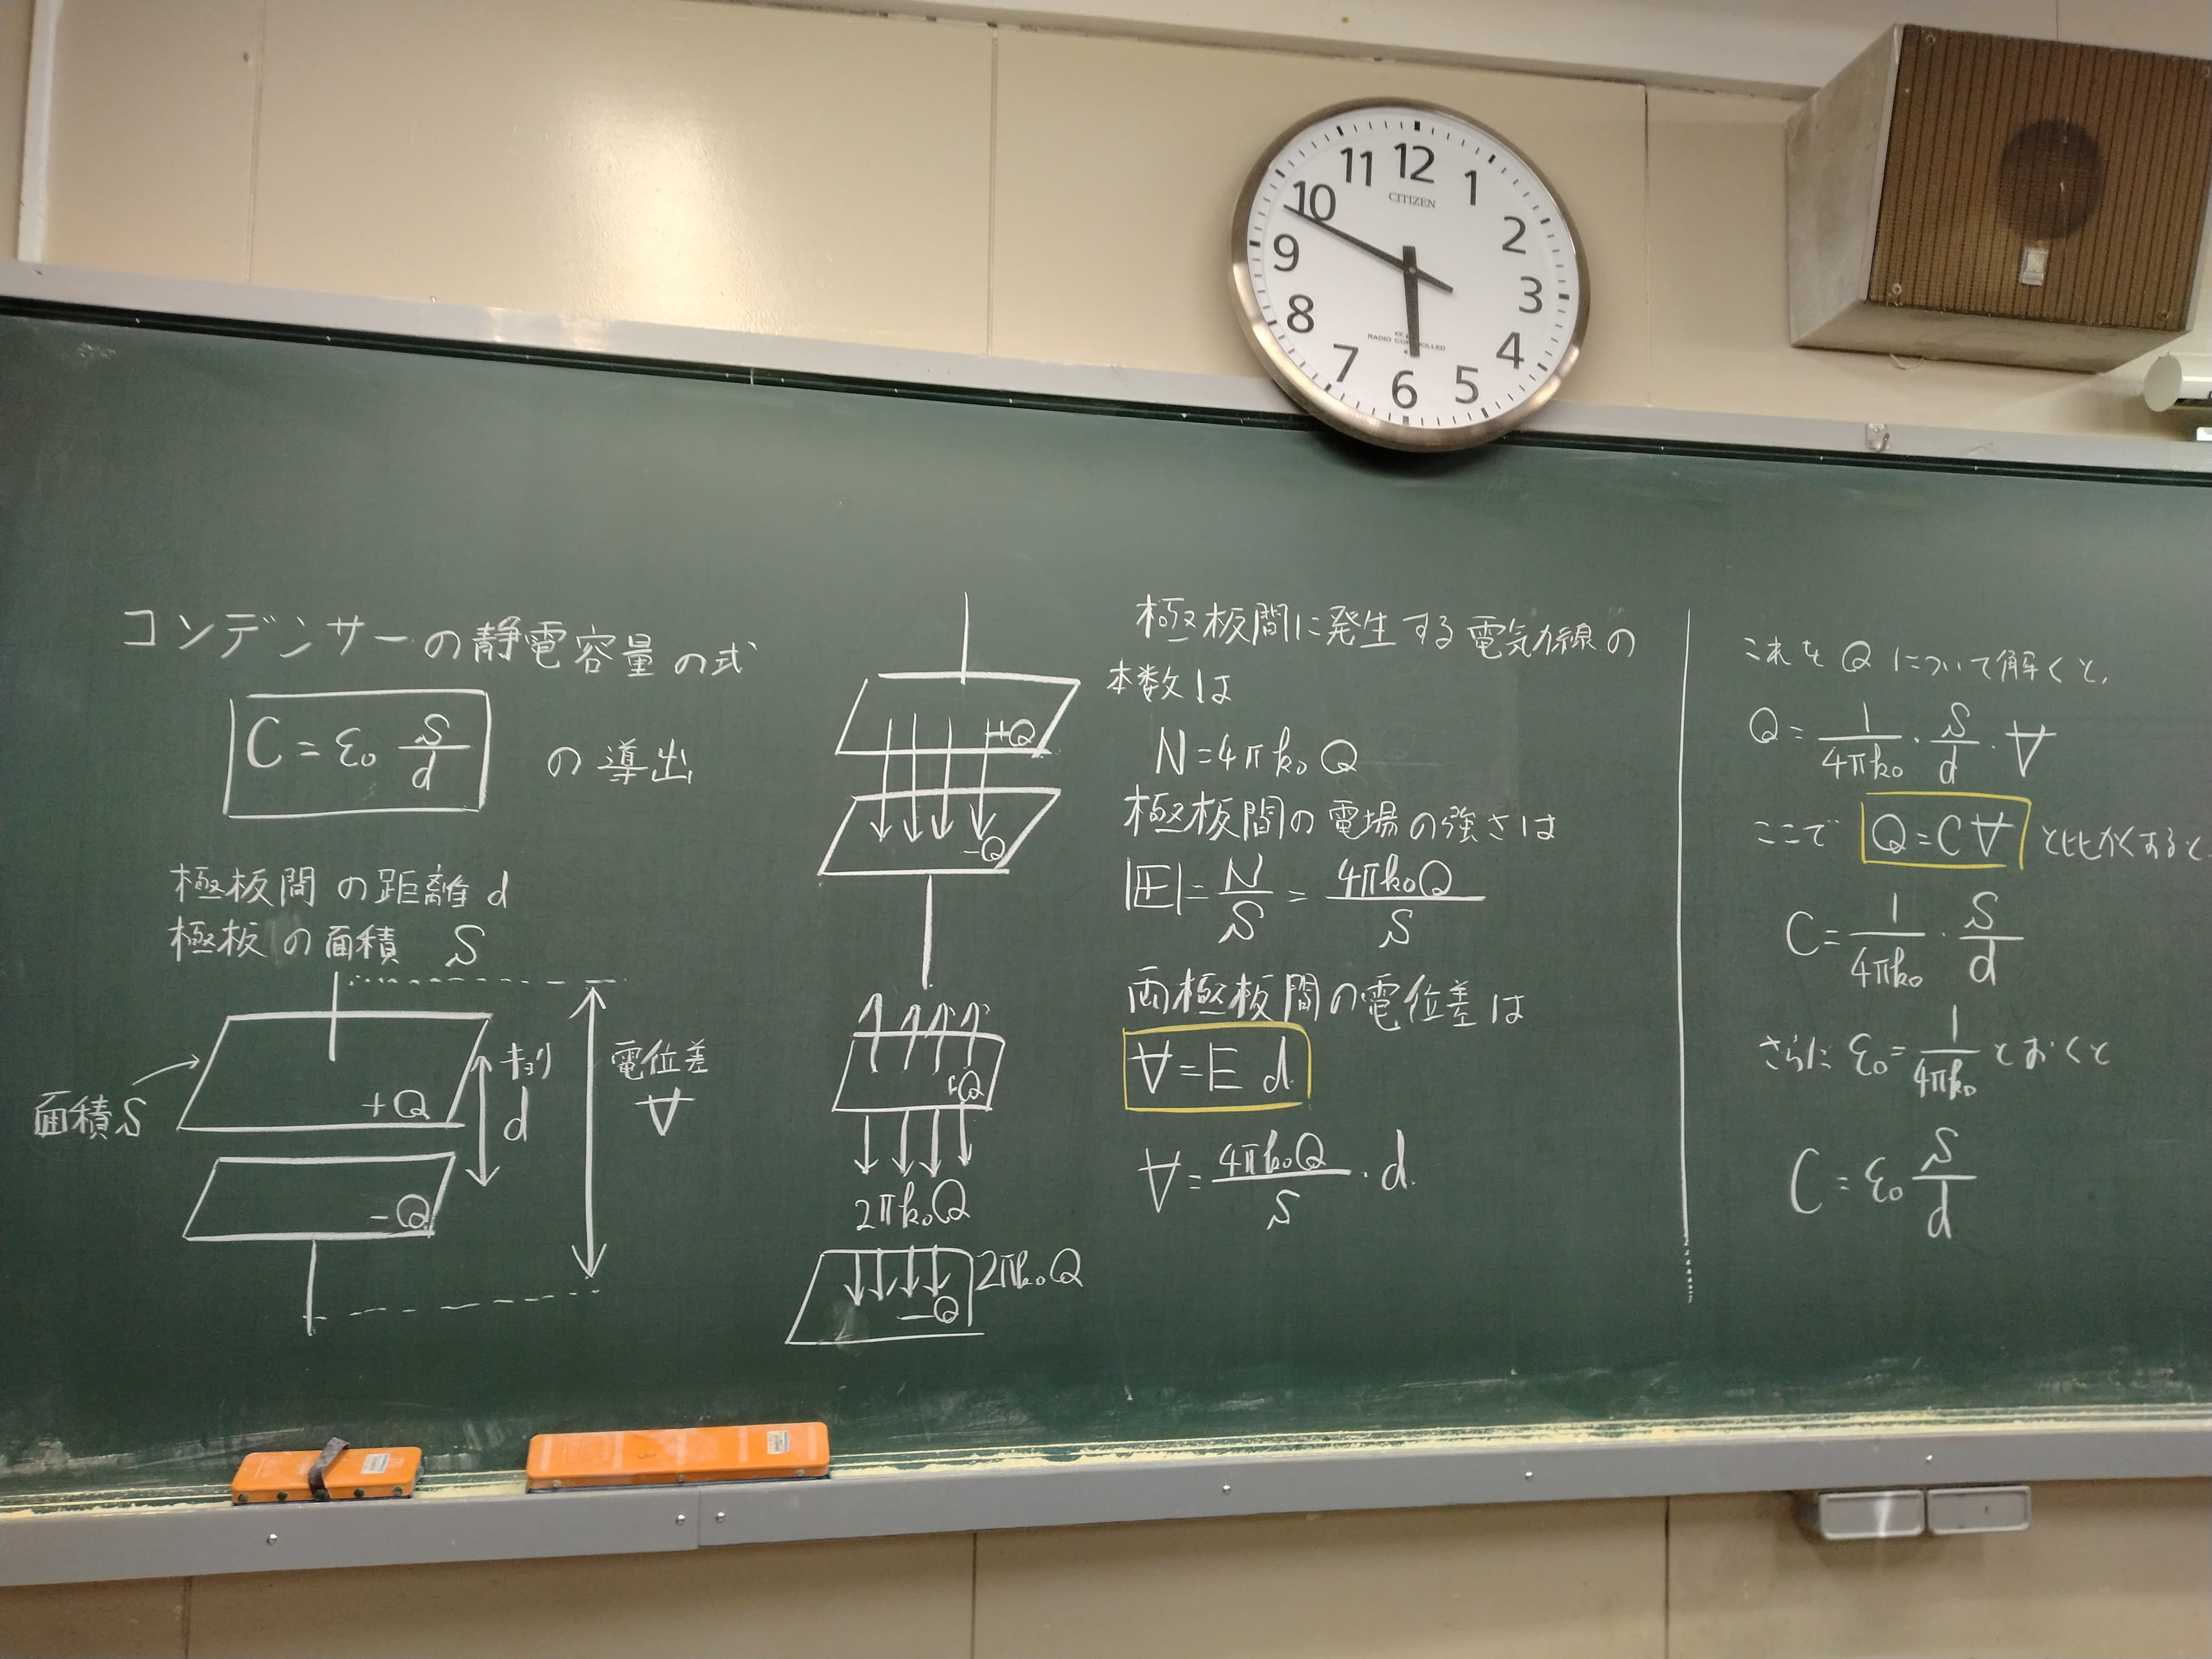 11 12 1
10 2
9 3
8 4
7 6 5
CITIZEN
RADIO CONTROLLED
コンデンサーの静電容量の式
C = ε₀ S/d の導出
極板間の距離 d
極板の面積 S
面積S
+Q
-Q
キョリ
d
電位差
V
+Q
-Q
+Q
2πk₀Q
2πk₀Q
-Q
極板間に発生する電気力線の
本数は
N=4πk₀Q
極板間の電場の強さは
|E|= N/S = 4πk₀Q/S
両極板間の電位差は
V=E d
V= 4πk₀Q/S · d.
これを Q について解くと,
Q= 1/4πk₀ · S/d · V
ここで Q=CV と比かくすると
C= 1/4πk₀ · S/d
さらに ε₀= 1/4πk₀ とおくと
C = ε₀ S/d